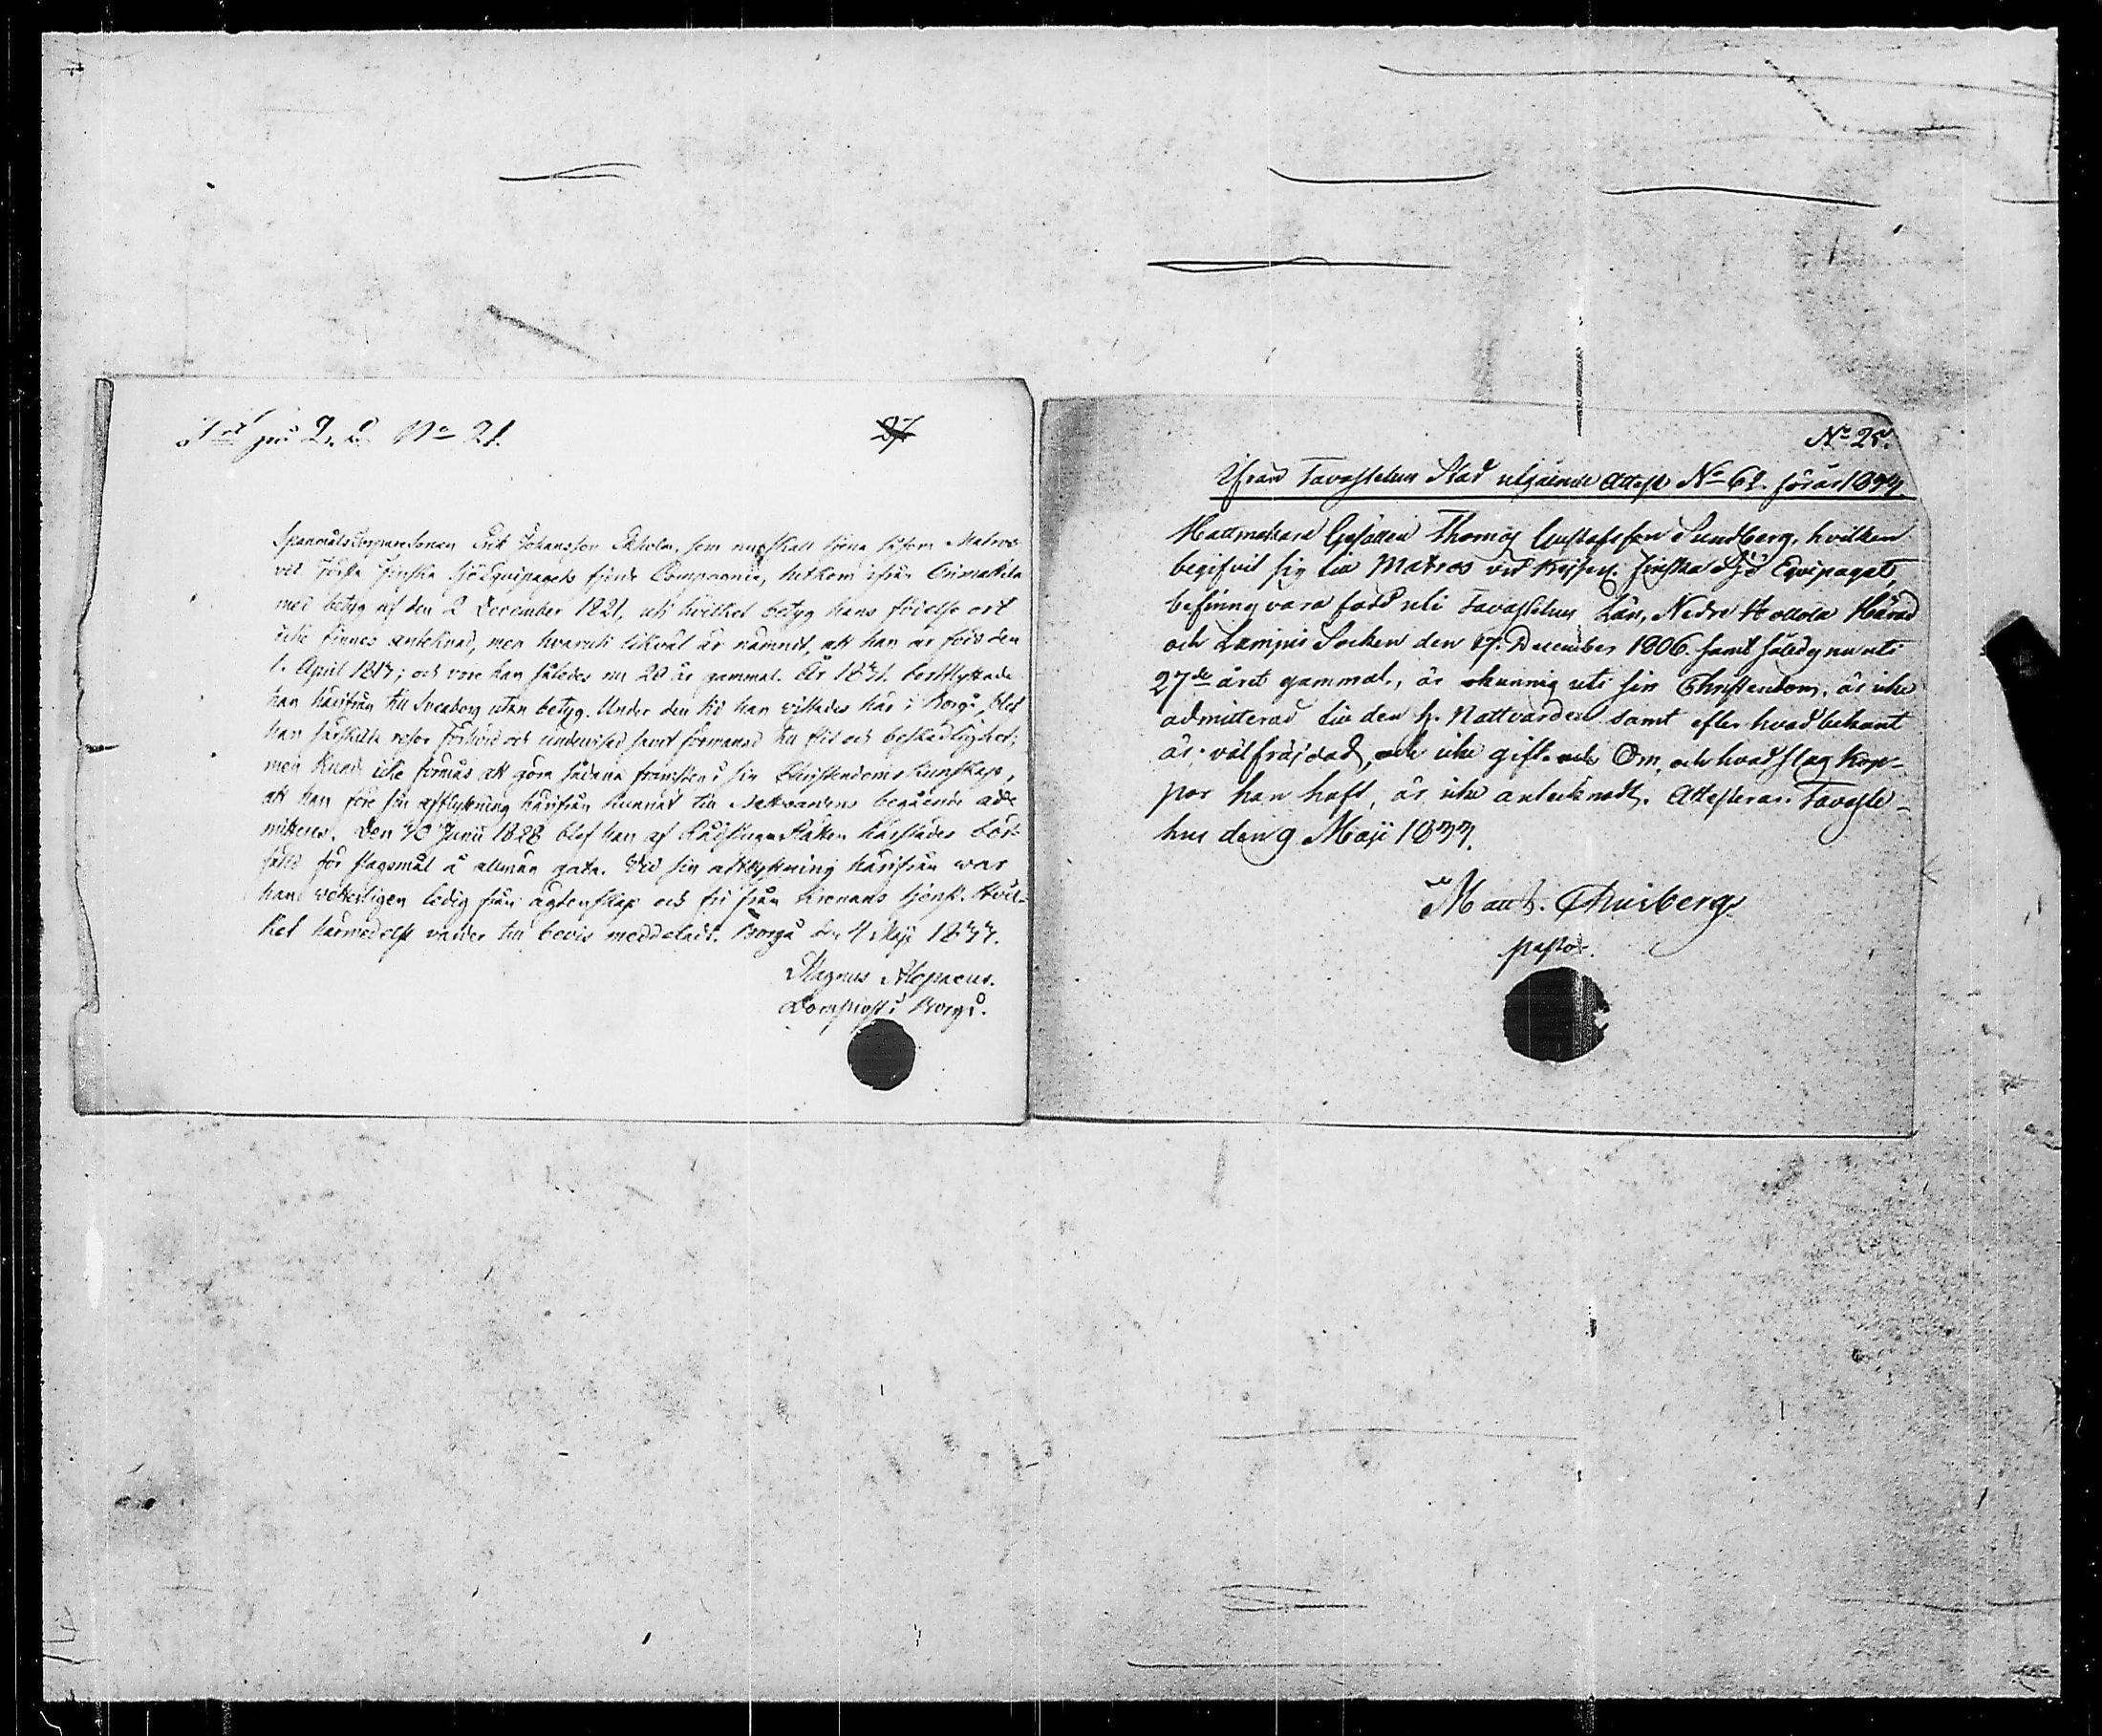 No 21.
27
Spanmåls Erik Johansson Ekholm, som nu skall tjena såsom Matros
vid Första Finska Sjö Equipagets fjerde Compagnie, hitkom ifrån Orimatila
med betyg af den 2 December 1821, uti hvilket betyg hans födelse ort
icke finnes antecknad, men hvaruti likväl är nämndt, att han är född den
1. April 1813; och vore han således nu 20 år gammal. År 1831. bortflyttade
han härifrån till Sveaborg utan betyg. Under den tid han vistades här i Borgå, blef
han särskilta resor förhörd och undervised samt förmanad till flit och beskedlighet;
men kunde icke förmås att göra sådana framsteg i sin Christendoms kunskap,
att han före sin afflyttning härifrån kunnat till Nattvardens begående ad-
mitteras. Den 30 Junii 1828 blef han af Rådstugu Rätten härstädes böt-
fälld för slagsmål å allmän gata. Vid sin afflyttning härifrån war
han vetterligen ledig från ägtenskap och fri från kronans tjenst. Hvil-
ket härmedelst varder till bevis meddeladt. Borgå d. 4 Maji 1833.
Magnus Alopaeus.
Domprost i Borgå.
No 25.
Ifrån Tavastehus Stad utgående Attest No 62. för år 1833.
Hattmakare Gesällen Thomas Gustafsson Sundberg, hvilken
begifvit sig till Matros vid Kejserl. Finska Sjö Equipaget,
befinnes vara född uti Tavastehus Län, Nedre Hollola Härad
och Lampis Socken den 17. December 1806. samt således nu uti
27de året gammal, är okunnig uti sin Christendom, är icke
admitterad till den H. Nattvarden samt efter hvad bekant
är, välfräjdad, och icke gift. och Om, och hvad slag kop-
por han haft, är icke anteknadt. Attesterar. Tavaste-
hus den 9 Maji 1833.
pastor.